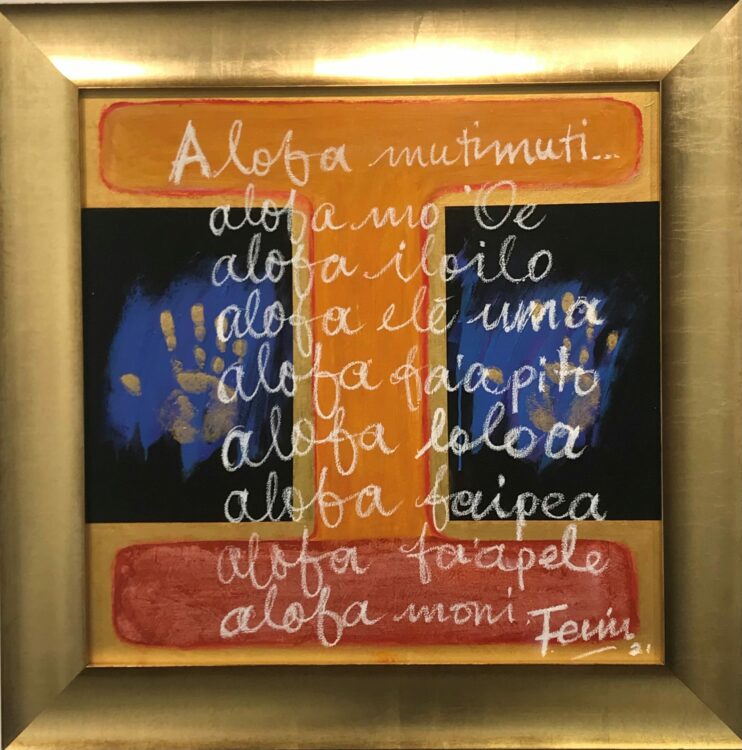 Alofa mutimuti...
alofa mo 'Oe
alofa iloilo
alofa elē uma
alofa fa'apito
alofa loloa
alofa faipea
alofa fa'apele
alofa moni.
21